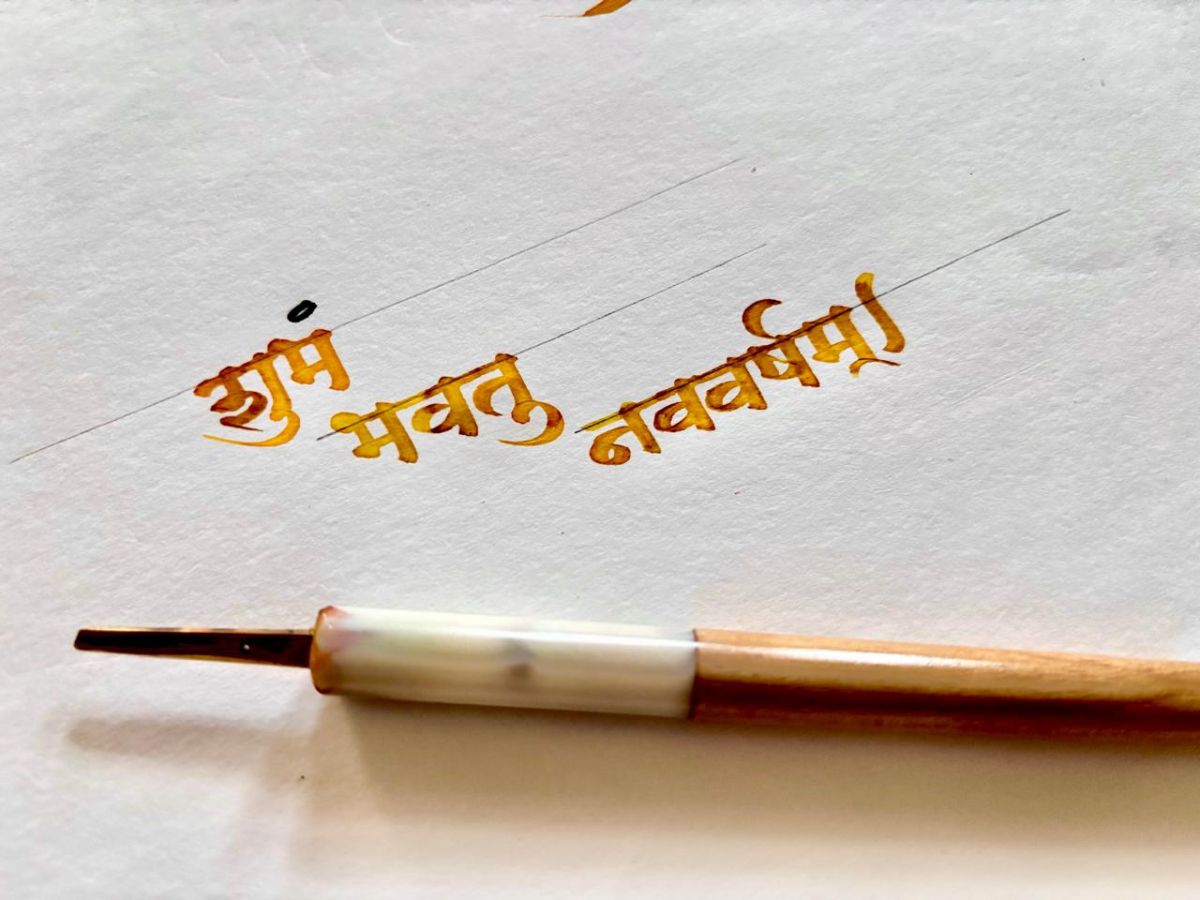 शुभं
भवतु
नववर्षम्।